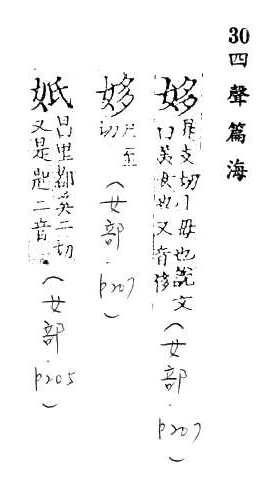 30四聲篇海
姼 是支切 母也說文
曰美女也又音 (女部 p207)
姼 尺至
切 (女部 p207)
昌里都奚二切
又是匙二音 (女部 p205)